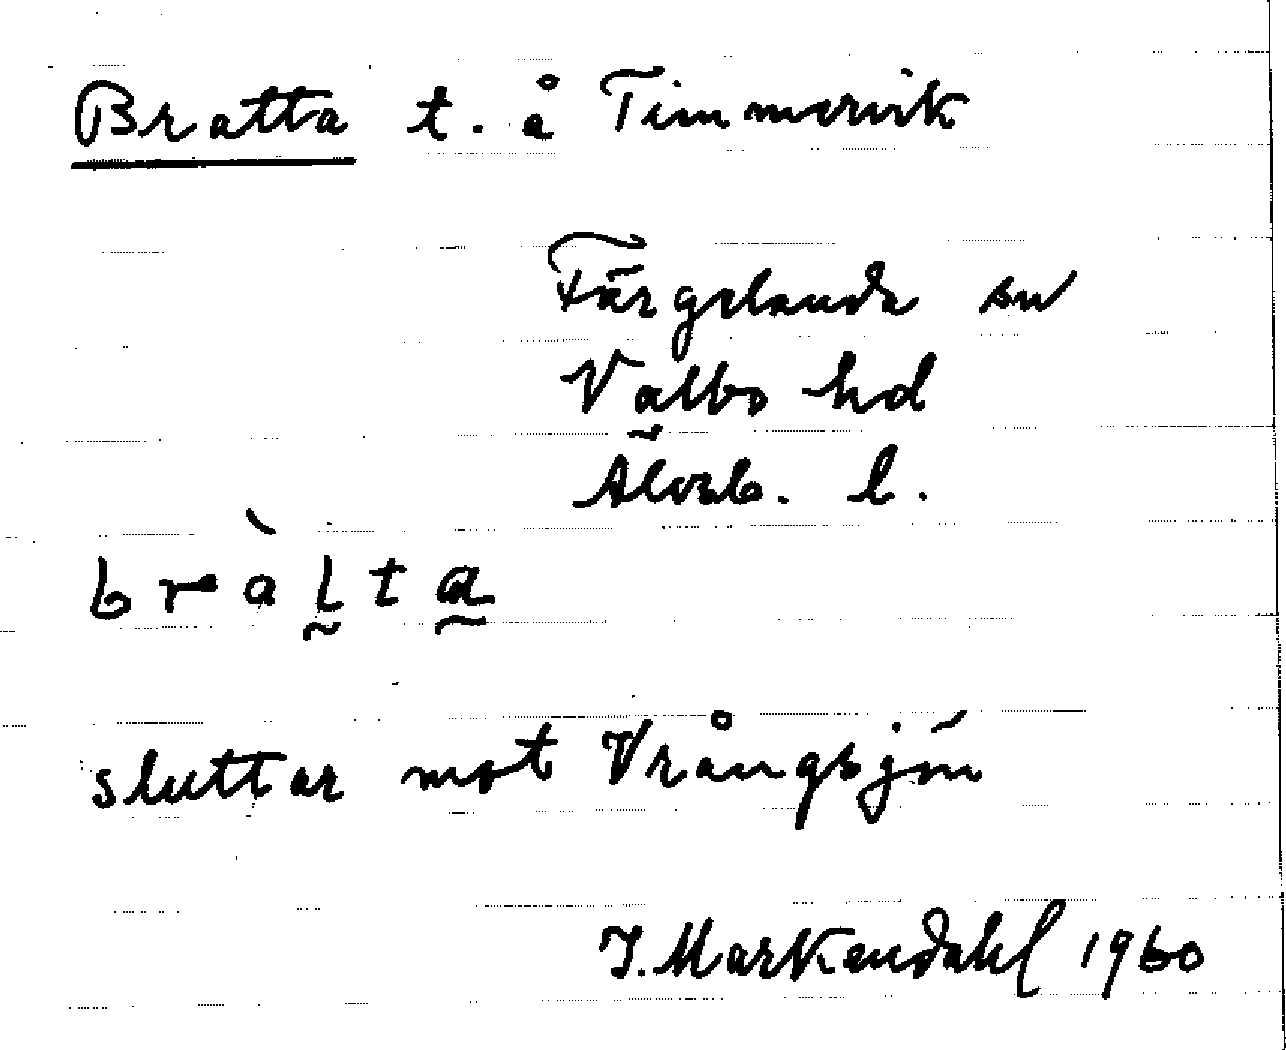 Bratta t. å Timmervik
Färgelanda sn
Valbo hd
Älvsb. l.
bràl̰ta̰
sluttar mot Vrångsjön
I. Markendahl 1960